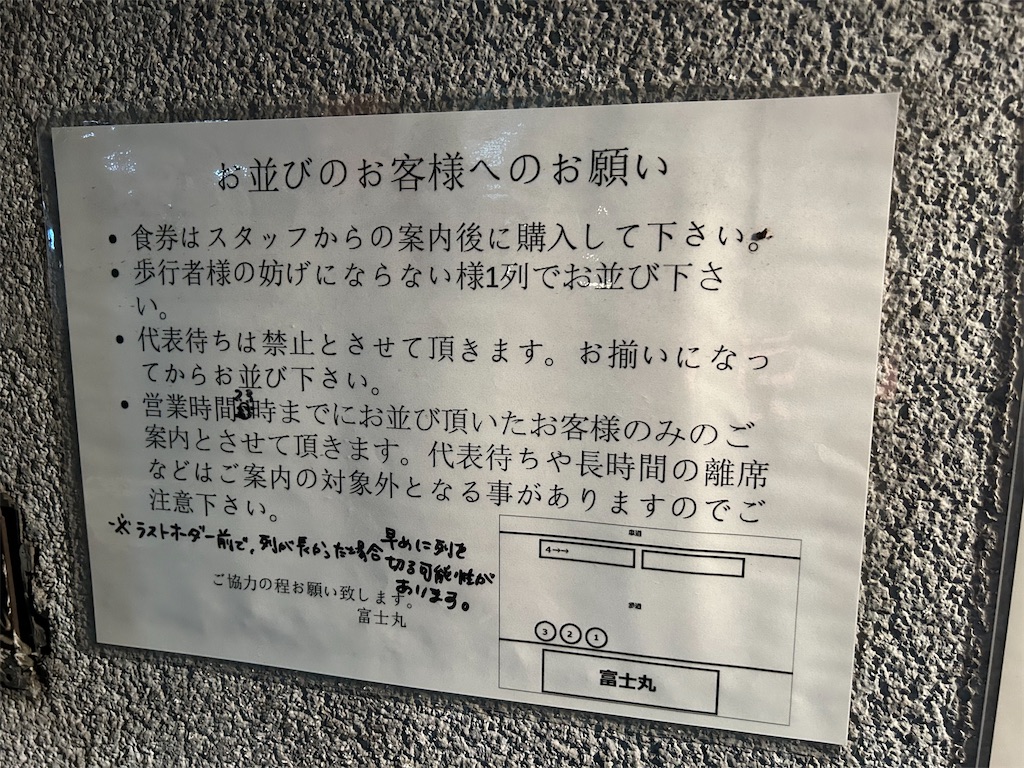 お並びのお客様へのお願い
• 食券はスタッフからの案内後に購入して下さい。
• 歩行者様の妨げにならない様1列でお並び下さ
い。
• 代表待ちは禁止とさせて頂きます。お揃いになっ
てからお並び下さい。
• 営業時間23時までにお並び頂いたお客様のみのご
案内とさせて頂きます。代表待ちや長時間の離席
などはご案内の対象外となる事がありますのでご
注意下さい。
※ラストオーダー前で、列が長かった場合早めに列を
切る可能性が
あります。
ご協力の程お願い致します。
富士丸
車道
4→→
歩道
3 2 1
富士丸